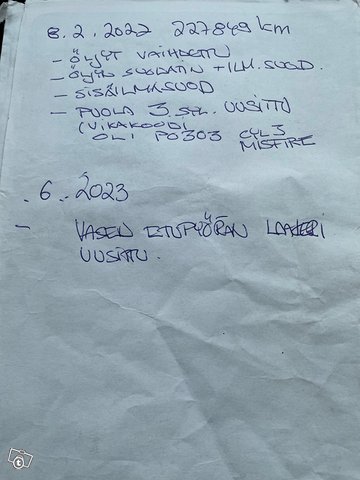 8.2.2022 227849 km
- ÖLJYT VAIHDETTU
- ÖLJYN SUODATIN + ILM.SUOD.
- SISÄILMASUOD
- PUOLA 3 SYL. UUSITTU
(VIKAKOODI
OLI P0303 CYL 3
MISFIRE
.6..2023
- VASEN ETUPYÖRÄN LAAKERI
UUSITTU.